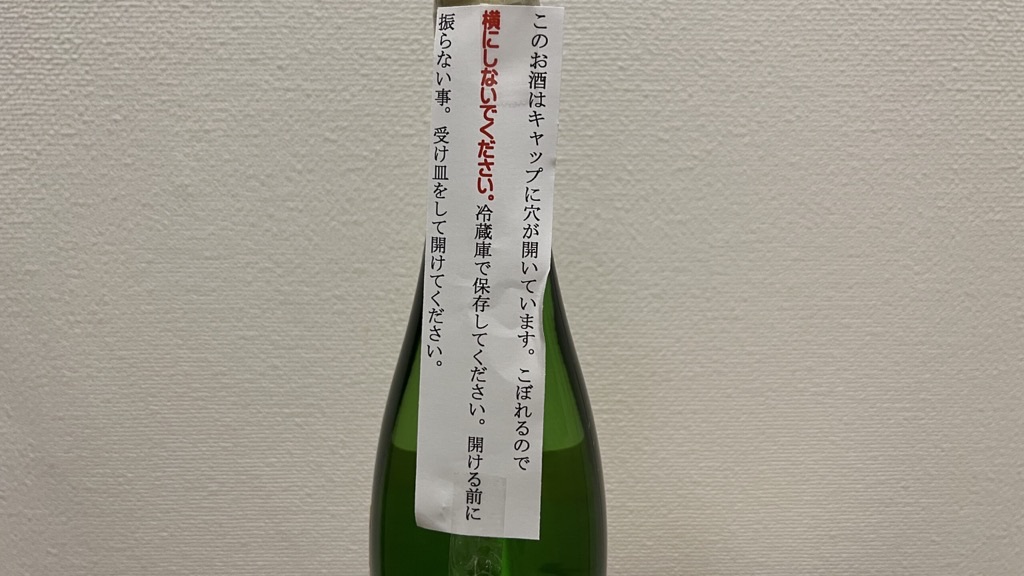 このお酒はキャップに穴が開いています。こぼれるので
横にしないでください。冷蔵庫で保存してください。開ける前に
振らない事。受け皿をして開けてください。